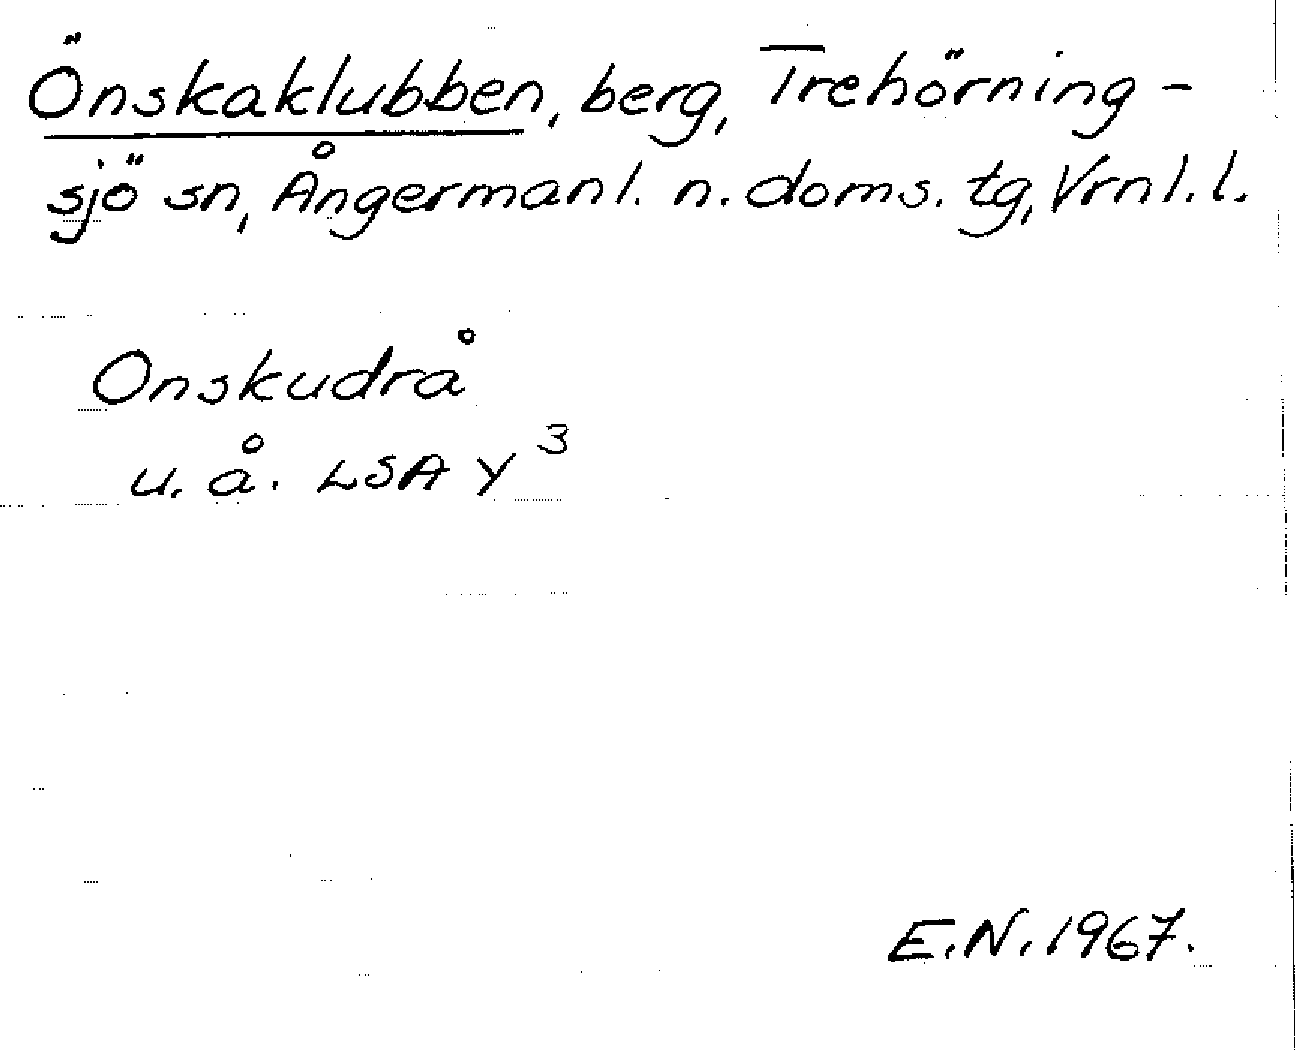 Önskaklubben, berg, Trehörning-
sjö sn, Ångermanl. n. doms. tg, Vrnl. l.
Onskudrå
u. å. LSA Y 3
E.N. 1967.